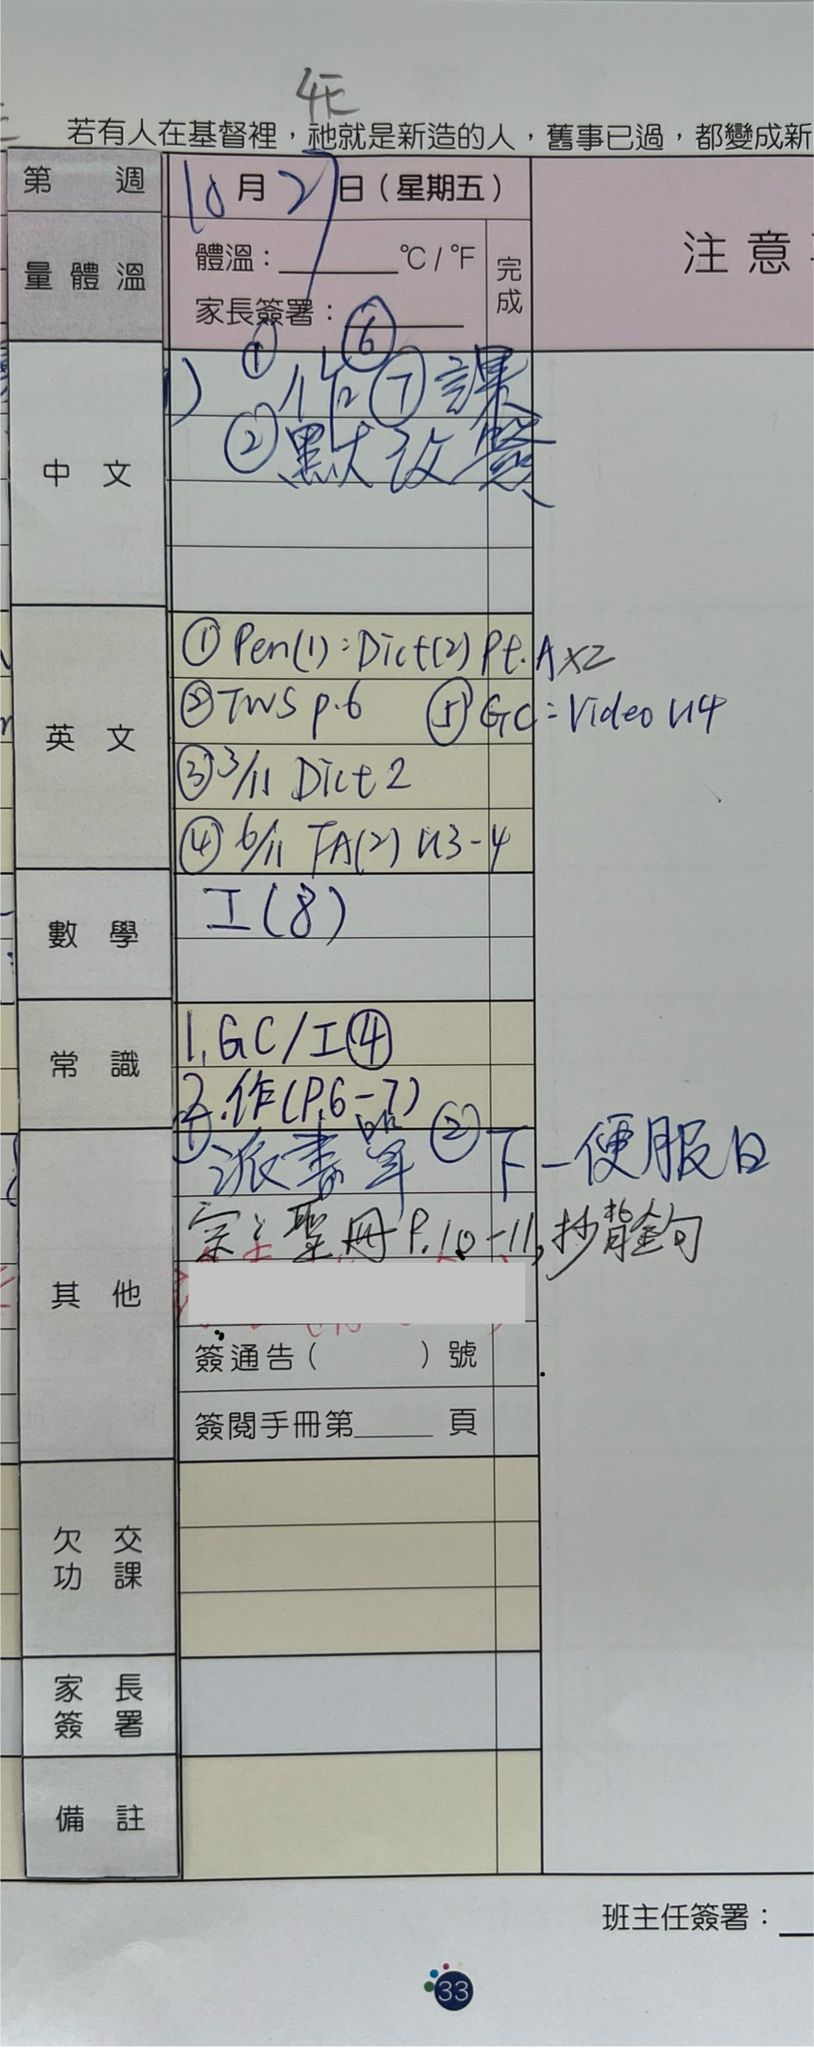 4E
若有人在基督裡，祂就是新造的人，舊事已過，都變成新
第 週
10月27日（星期五）
量體溫
體溫：______℃/℉
完成
家長簽署：______
注意
中文
① 作⑥⑦課
② 默改簽
英文
① Pen(1)：Dict(2) Pt.A x2
② TWS p.6 ⑤ GC：Video U4
③ 3/11 Dict 2
④ 6/11 TA(2) U3-4
數學
工(8)
常識
1. GC/工④
2. 作(P.6-7)
其他
① 派書單 ② 下一便服日
宗：聖冊P.10-11，抄背金句
簽通告（ ）號
簽閱手冊第____頁
欠交功課
家長簽署
備註
班主任簽署：
33